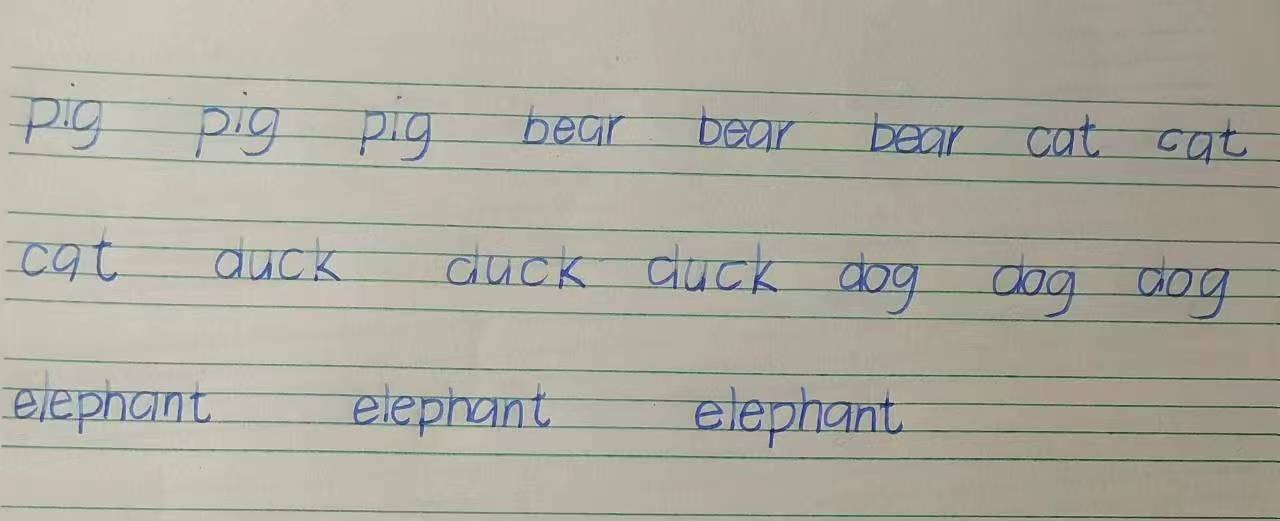 pig pig pig bear bear bear cat cat
cat duck duck duck dog dog dog
elephant elephant elephant